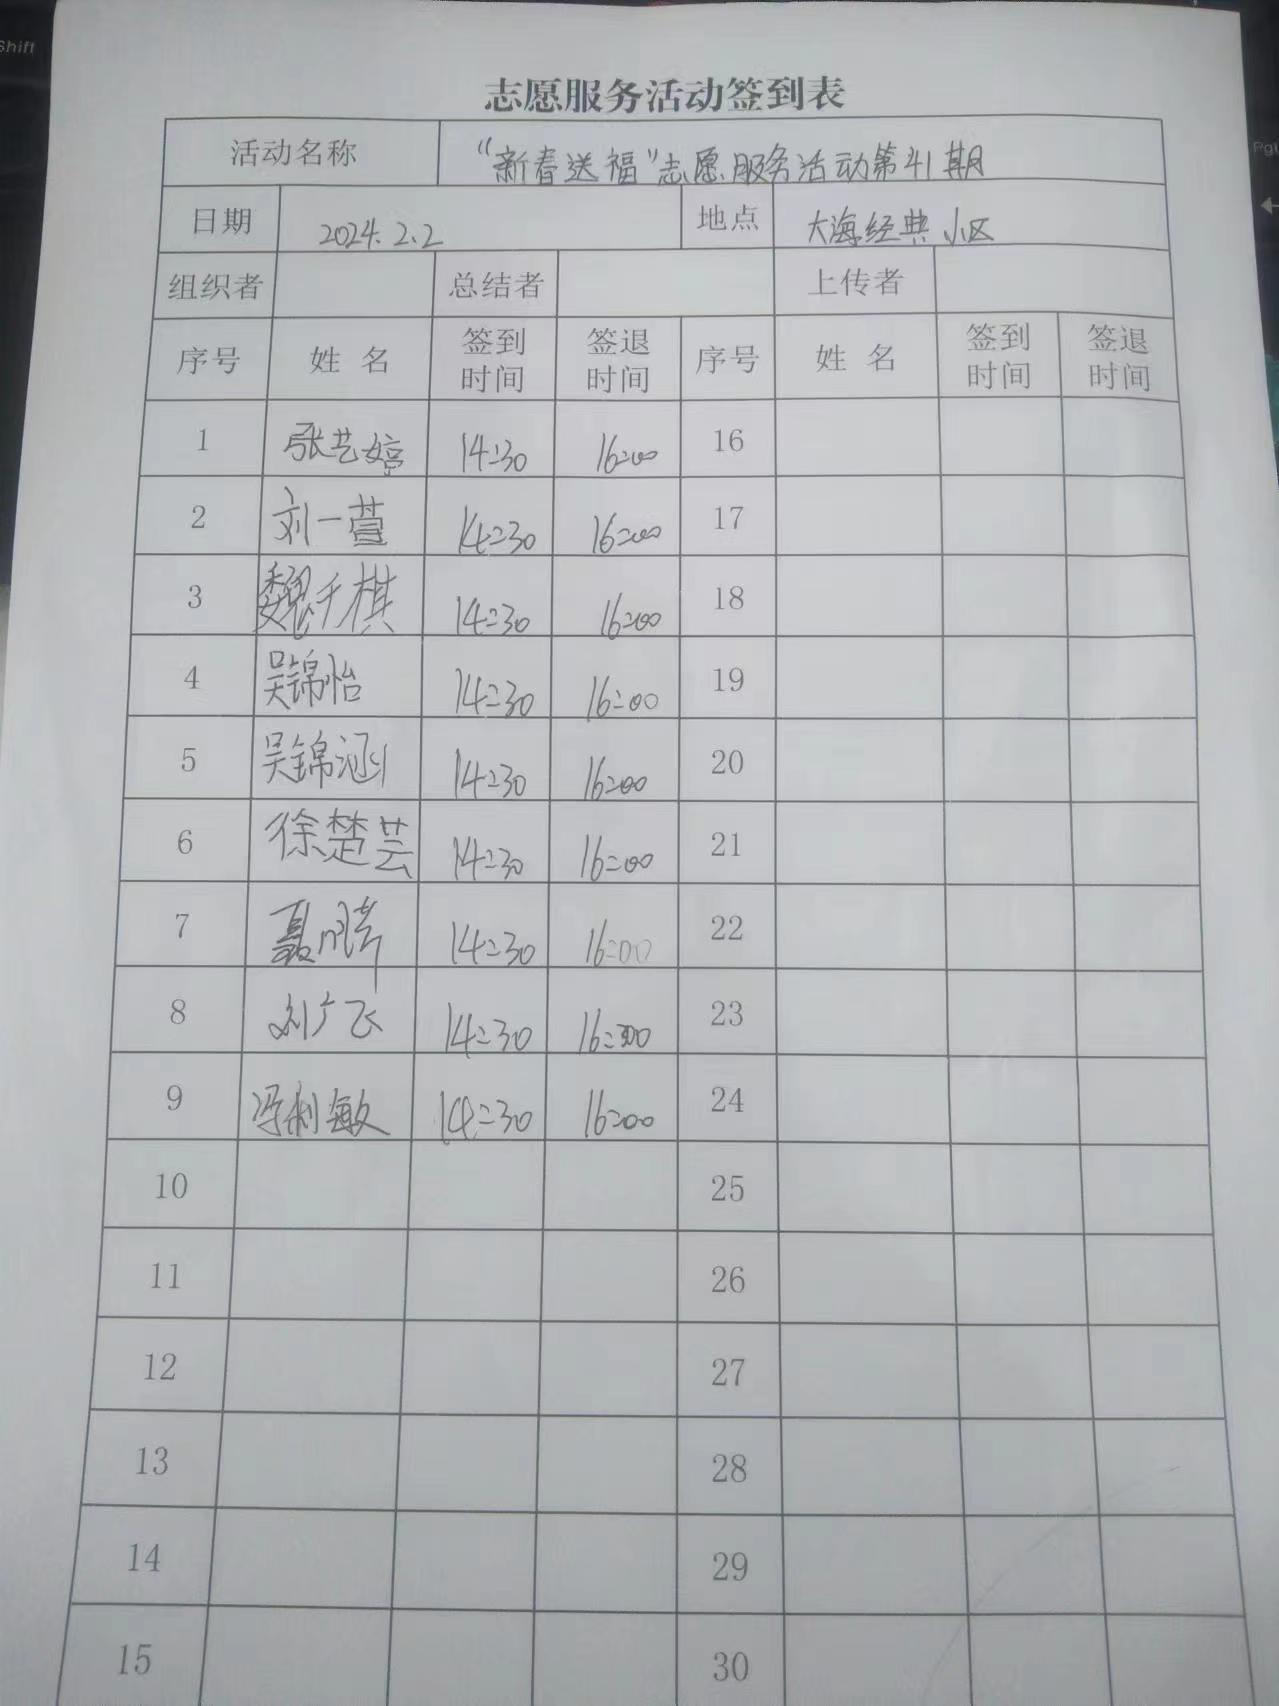 Shift
志愿服务活动签到表
活动名称 “新春送福”志愿服务活动第41期
日期 2024.2.2 地点 大海经典小区
组织者 总结者 上传者
序号 姓名 签到时间 签退时间 序号 姓名 签到时间 签退时间
1 张艺婷 14:30 16:00 16
2 刘一萱 14:30 16:00 17
3 魏千棋 14:30 16:00 18
4 吴锦怡 14:30 16:00 19
5 吴锦涵 14:30 16:00 20
6 徐楚芸 14:30 16:00 21
7 14:30 16:00 22
8 刘广飞 14:30 16:00 23
9 冯利敏 14:30 16:00 24
10 25
11 26
12 27
13 28
14 29
15 30